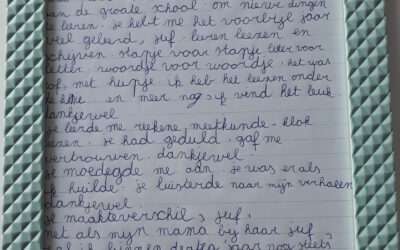 van de grote school. om nieuwe dingen
te leren. je hebt me het voorbije jaar
veel geleerd, juf. leren lezen en
schrijven stapje voor stapje letter voor
letter. woordje voor woordje. het was
tof, met hupje. ik heb het leezen onder
de knie. en meer nog ik vind het leuk.
dankjewel
je leerde me rekene, meetkunde - klok
lezen. je had geduld. gaf me
vertrouwen. dankjewel.
je moedegde me aan. je was er als
ik huilde. je luisterde naar mijn verhalen
dankjewel.
je maakte verschil, juf,
net als mijn mama bij haar juf,
zal ik binnen dertig jaar nog steets